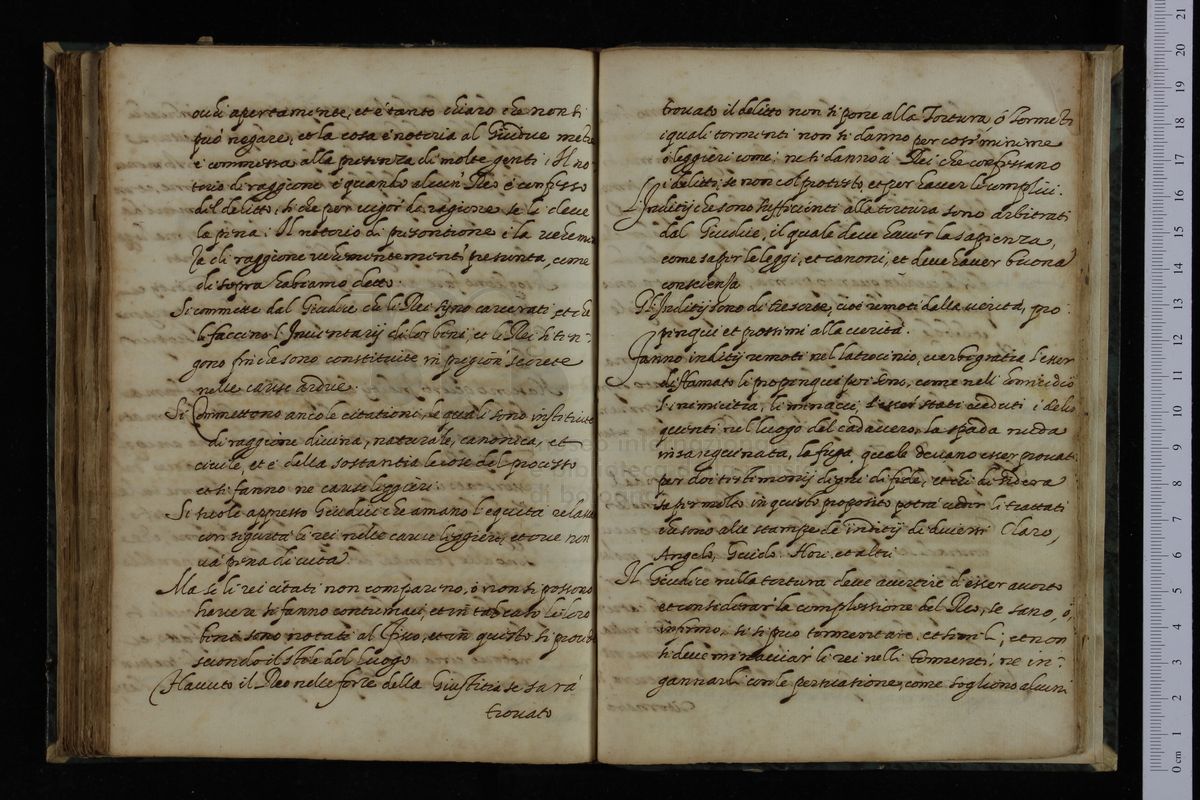 ochi apertamente, et è tanto chiaro che non si
può negare, et la cosa è notoria al Giudice mentre
è commessa alla presenza di molte genti; Il no-
torio di raggione è quando alcun Reo è confesso
del delitto, si che per vigor di ragione se li deve
la pena: Il notorio di presontione è la vehemen
di raggione vehementementi presunta, come
di sopra habiamo detto.
Si commette dal Giudice che li Rei siano carcerati, et che
si faccino l'Inventarij di lor beni, et li Rei si ten-
gono finche sono constituiti in pregion secrete
nelle cause ardue.
Si Commettono anco le citationi, le quali sono instituite
di raggione divina, naturale, canonica, et
civile, et è della sostantia le cose del processo
et si fanno ne cause leggieri
Si suole appresso Giudici che amano l'equità relassar
con sigurtà li rei nelle cause liggieri, et ove non
và pena di vita
Ma se li rei citati non compareno, ò non si possono
havere si fanno contumaci, et in tal caso le loro
beni sono notati al Fisco, et in questo si proced
secondo il stile del luogo
Havuto il Reo nelle forze della Giustitia se sarà
trovato
trovato il delitto non si pone alla Tortura ò Tormeti
i quali tormenti non si danno per cose minime
ò leggieri come, ne si danno à Rei che confessano
i delitti, se non col protesto, et per haver li complici.
L'Inditij che sono sufficienti alla tortura sono arbitrati
dal Giudice, il quale deve haver la sapienza,
come saper le leggi, et canoni, et deve haver buona
conscienza
Gl'Inditij sono di tre sorte, cioè remoti della verità, pro-
pinqui et prossimi alla verità.
Fanno inditij remoti nel latrocinio, verbogratia l'esser
diffamato li propinqui poi sono, come nell'homicidio
l'inimicitia, le minacci, l'esser stati veduti i delin
quenti nel luogo del cadavero, la spada nuda
insanguinata, la fuga, quale devano esser provati
per doi testimonij degni di fede, et chi desidera
saper molto in questo proposito potrà veder li trattati
che sono alle stampe de inditij di diversi Claro,
Angelo, Guido. Flor. et altri
Il Giudice nella tortura deve avertire d'esser acorto
et considerar la complessione del Reo, se sano, ò
infermo, si si può tormentare, et simili; et non
si deve minacciar li rei nelli tormenti, ne in-
gannarli con le persuasione, come sogliono alcuni
museo internazionale
e biblioteca della musica
di bologna